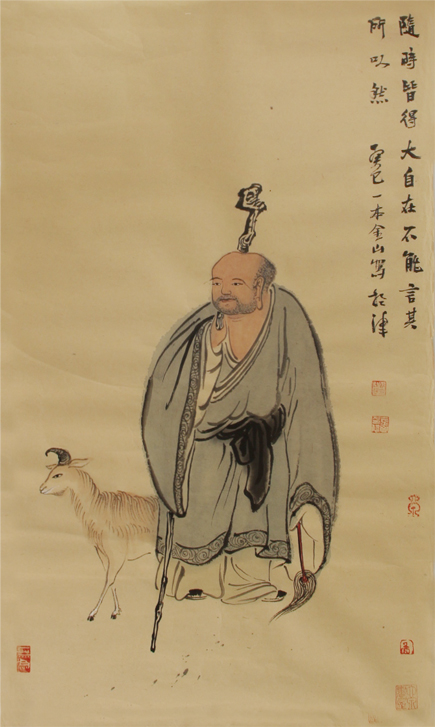 隨時皆得大自在不能言其
所以然 癸巳一本金山寫於津